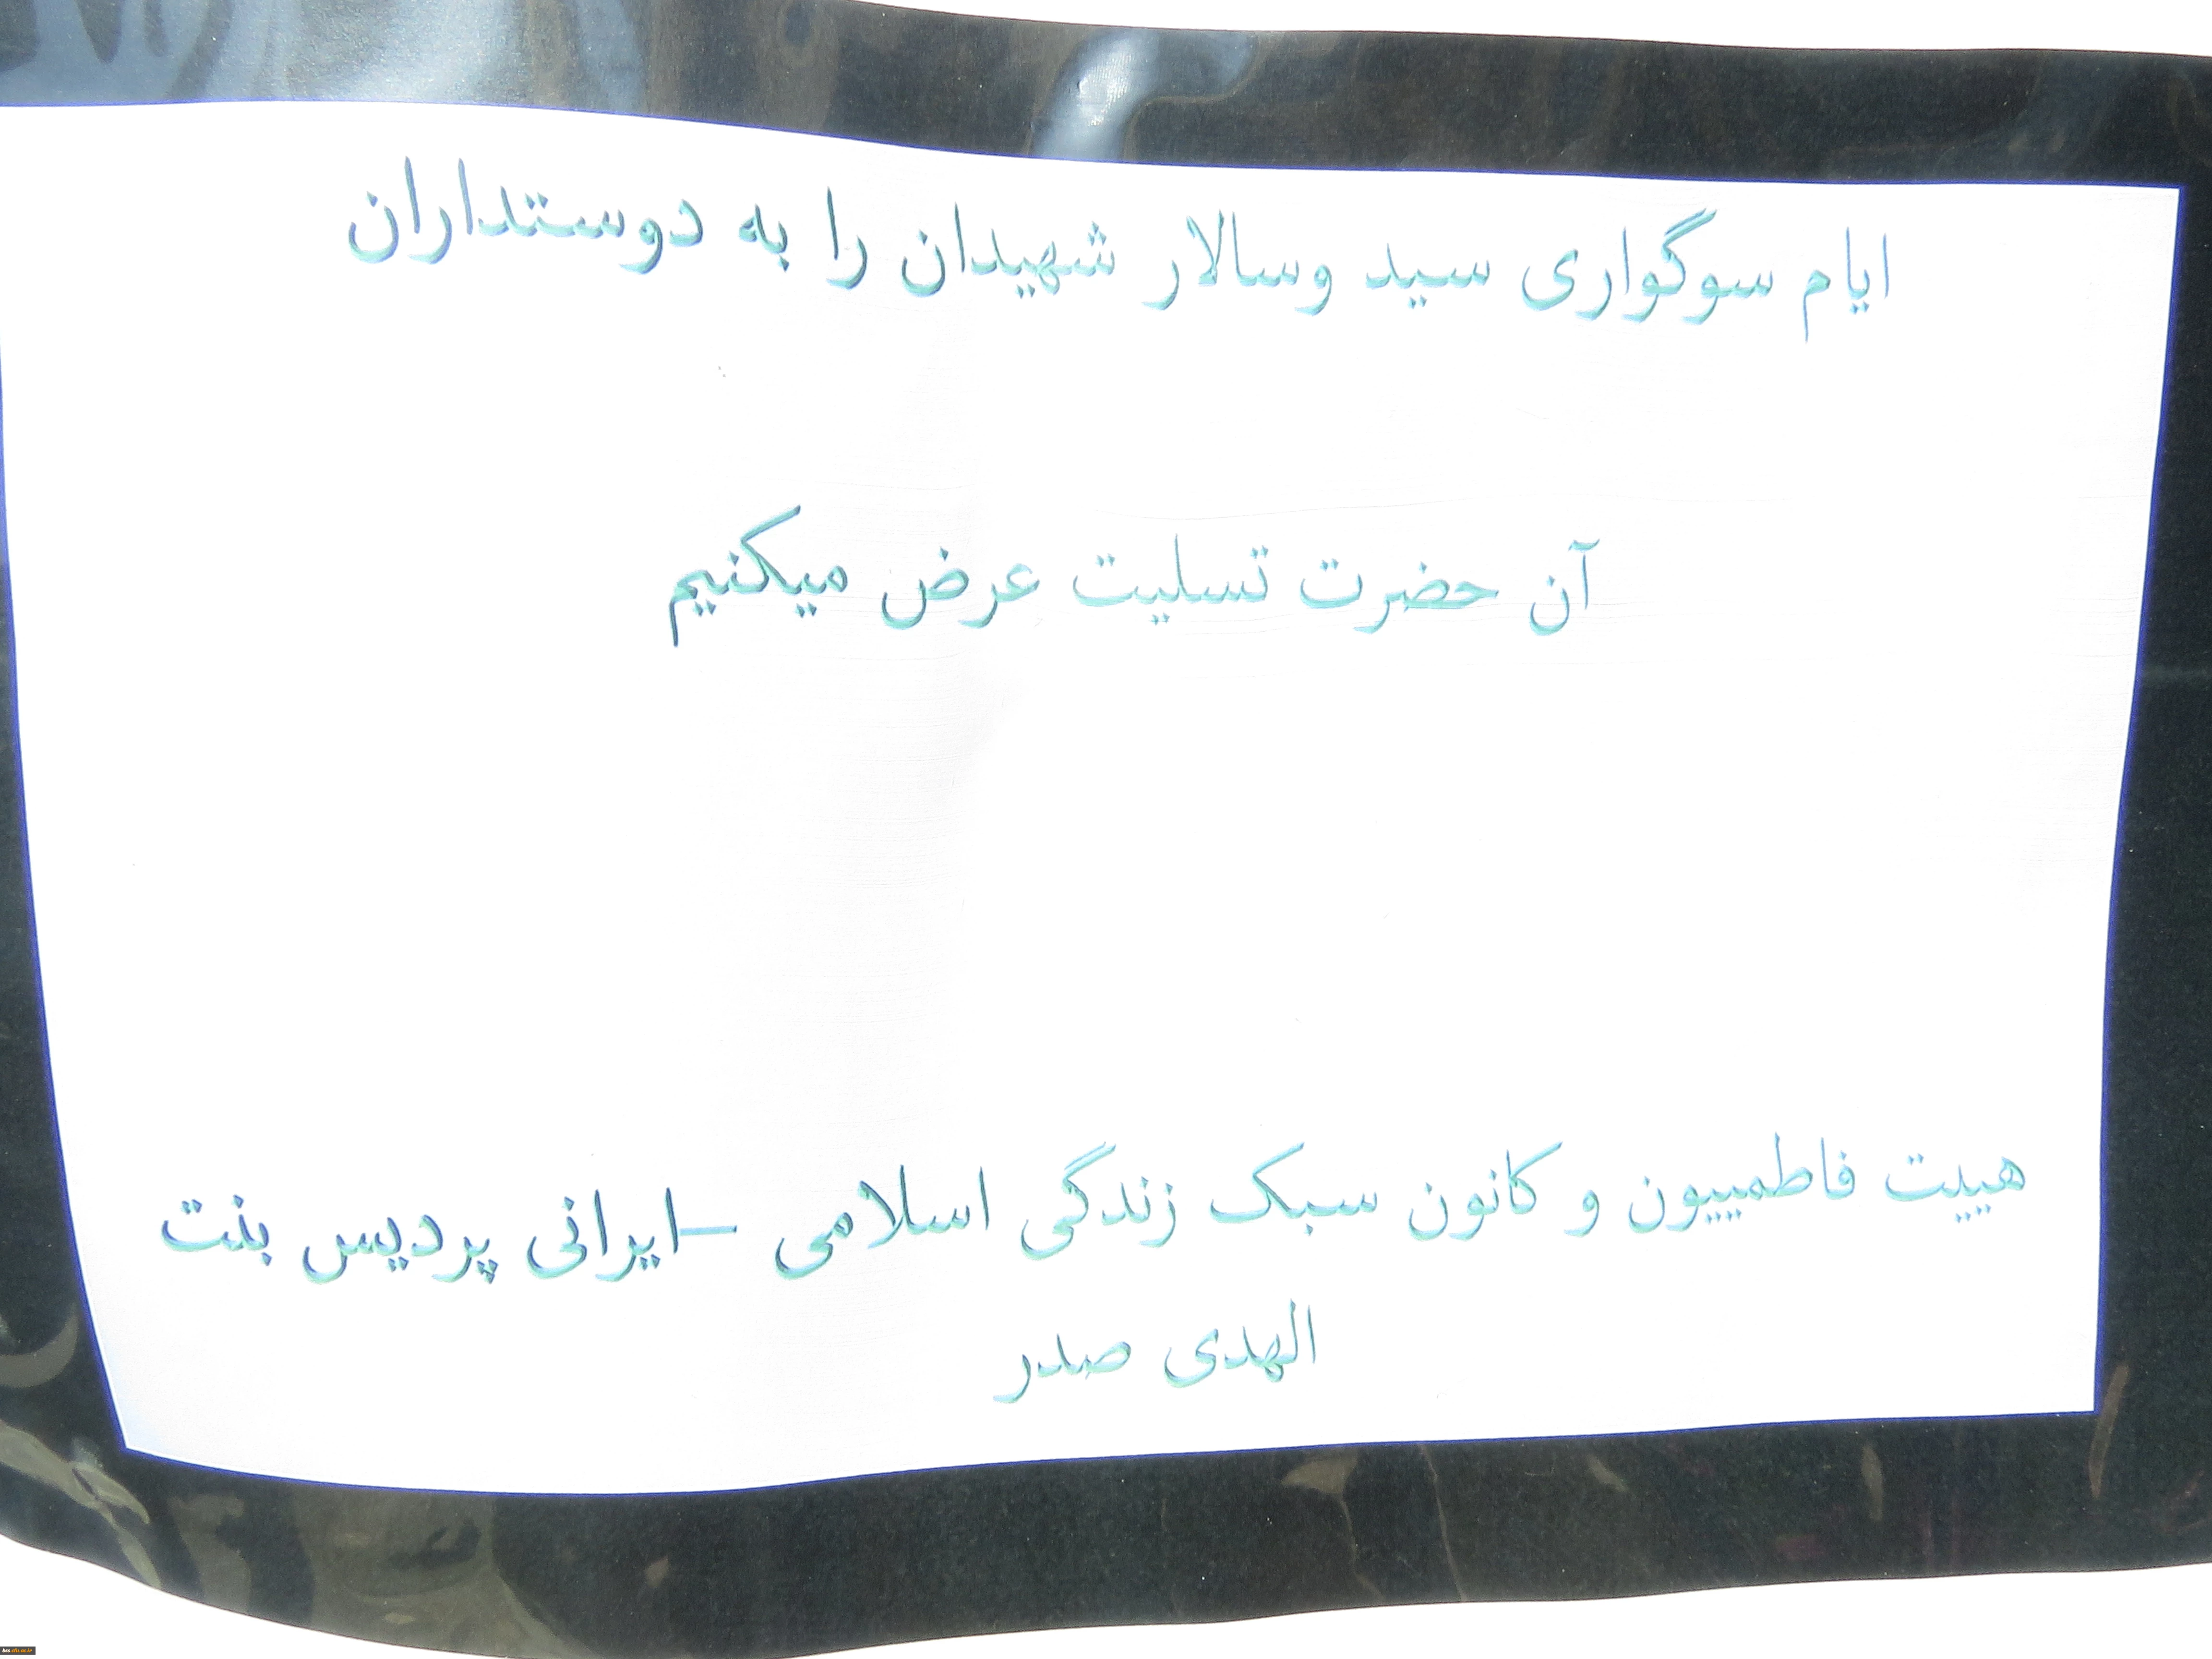 ایام سوگواری سید وسالار شهیدان را به دوستداران
آن حضرت تسلیت عرض میکنیم
هییت فاطمییون و کانون سبک زندگی اسلامی –ایرانی پردیس بنت
الهدی صدر